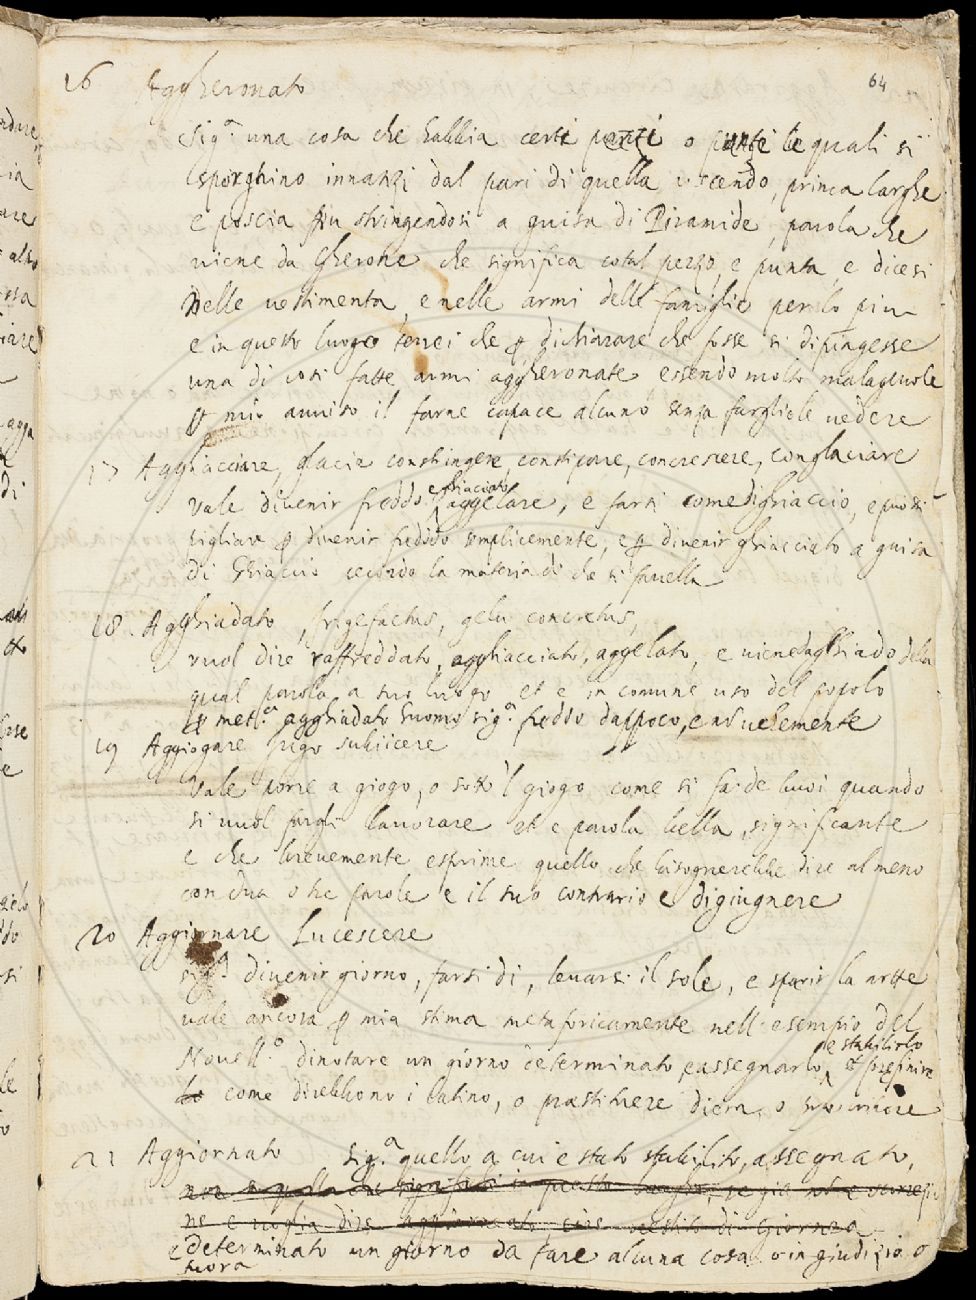 64
16 Aggheronato
Sig.a una cosa che habbia certi pezzi o punte le quali si
sporghino innanzi dal pari di quella uscendo, prima larghe
e poscia piu stringendosi a guisa di Piramide, parola che
uiene da Gherone che significa cotal pezzo, e punta, e dicesi
nelle uestimenta, e nelle armi delle famiglie per lo piu
e in questo luogo terrei che p dichiarare che fosse si dipingesse
una di cosi fatte armi aggheronate essendo molto malageuole
p mio auuiso il farne capace alcuno senza fargliele uedere
17 Agghiacciare, glacie constringere, constipare, concrescere, conglaciare
vale diuenir freddo e ghiacciato, aggelare, e farsi come di ghiaccio, e puossi
pigliare p diuenir freddo semplicemente, e p diuenir ghiacciato a guisa
di Ghiaccio secondo la materia di che si fauella
18 Agghiadato, frigefactus, gelu concretus,
vuol dire raffreddato, agghiacciato, aggelato, e uiene da ghiado della
qual parola a suo luogo et e in comune uso del popolo
p met.a agghiadato huomo sig.a freddo dappoco,
19 Aggiogare Iugo subiicere
Vale porre a giogo, o sotto 'l giogo come si fa de buoi quando
si uuol fargli lauorare et e parola bella, significante
e che breuemente esprime quello che bisognerebbe dire almeno
con dua o tre parole e il suo contrario e digiugnere
20 Aggiornare Lucescere
sig.a diuenir giorno, farsi di, leuarsi il sole, e sparir la notte
vale ancora p mia stima metaforicamente nell esempio del
Nouell.o dinotare un giorno determinato, e assegnarlo, e stabilirlo et prefinire
come direbbono i latini, o praestituere diem, o
21 Aggiornato sig.a quello a cui e stato stabilito, assegnato,
e determinato un giorno da fare alcuna cosa o in giudizio o
fuora